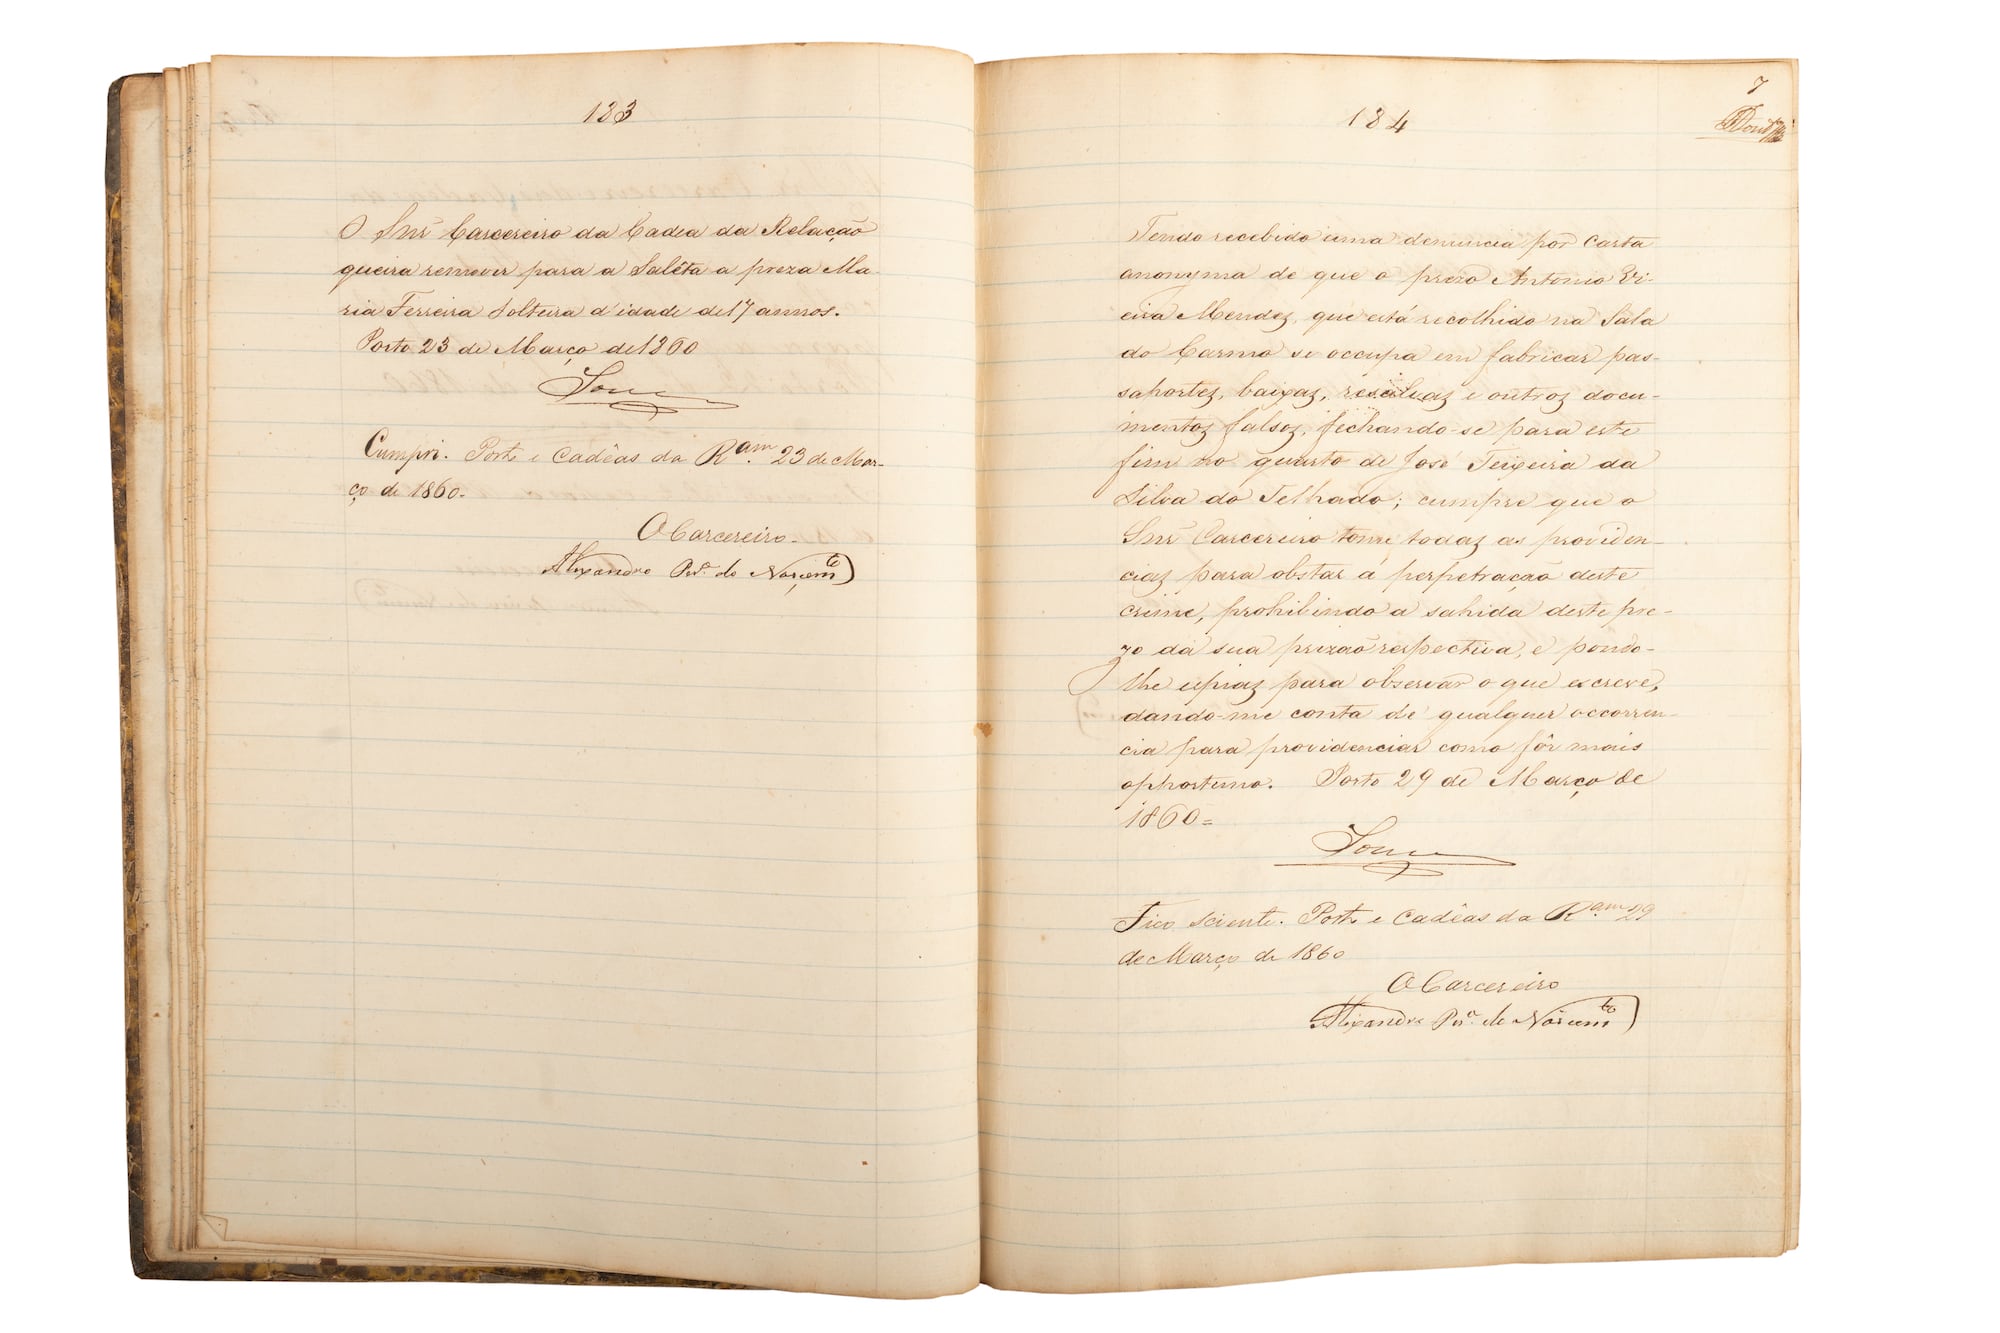 183
O Snr̃ Carcereiro da Cadea da Relação
queira remover para a Salêta a preza Ma-
ria Ferreira Solteira d'idade de 17 annos.
Porto 23 de Março de 1860
Cumpri. Porto e Cadêas da Ram. 23 de Mar-
ço de 1860.
O Carcereiro.
Alexandre Per.ª do Nascim.to
7
184
Tendo recebido uma denuncia por carta
anonyma de que o prezo Antonio Vi-
eira Mendez, que está recolhido na Sala
do Carmo se occupa em fabricar pas-
saportez, baixaz, resalvaz e outroz docu-
mentoz falsoz, fechando-se para este
fim no quarto de José Teixeira da
Silva do Telhado; cumpre que o
Snr̃ Carcereiro tome todaz as providen-
ciaz para obstar á perpetração deste
crime, prohibindo a sahida deste pre-
zo da sua prizão respectiva, e pondo-
lhe espiaz para observar o que escreve,
dando-me conta de qualquer occorren-
cia para providenciar como fôr mais
opportuno. Porto 29 de Março de
1860=
Fico sciente. Porto e Cadêas da Ram 29
de Março de 1860
O Carcereiro
Alexandre Per.ª do Nascim.to